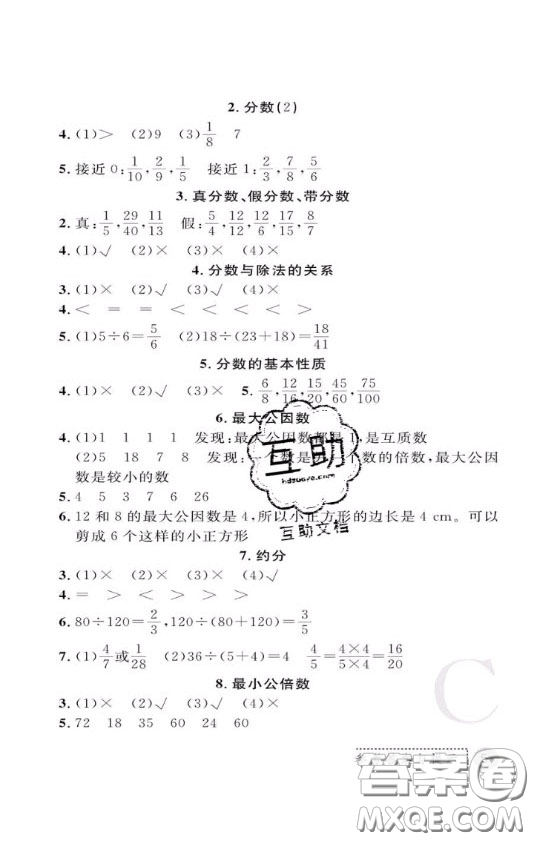 2. 分数(2)
4. (1)> (2)9 (3)1/8 7
5. 接近 0: 1/10, 2/9, 1/5 接近 1: 2/3, 7/8, 5/6
3. 真分数、假分数、带分数
2. 真: 1/5, 29/40, 11/13 假: 5/4, 12/12, 12/6, 17/15, 8/7
4. (1)√ (2)× (3)√ (4)×
4. 分数与除法的关系
3. (1)× (2)√ (3)√ (4)×
4. < = = < < < < >
5. (1)5÷6=5/6 (2)18÷(23+18)=18/41
5. 分数的基本性质
4. (1)× (2)× (3)√ (4)× 5. 6/8, 12/16, 15/20, 45/60, 75/100
6. 最大公因数
4. (1)1 1 1 1 发现:最大公因数都是 1,是互质数
(2)5 18 7 8 发现:一个数是另一个数的倍数,最大公因
数是较小的数
5. 4 5 3 7 6 26
6. 12 和 8 的最大公因数是 4,所以小正方形的边长是 4 cm。可以
剪成 6 个这样的小正方形
7. 约分
3. (1)× (2)× (3)× (4)√
4. = > < > > >
6. 80÷120=2/3, 120÷(80+120)=3/5
7. (1)4/7或1/28 (2)36÷(5+4)=4 4/5=4×4/5×4=16/20
8. 最小公倍数
3. (1)× (2)√ (3)√ (4)×
5. 72 18 35 60 24 60
C
互助
hdzuoye.com
互助文档
答案卷
MXQE.COM